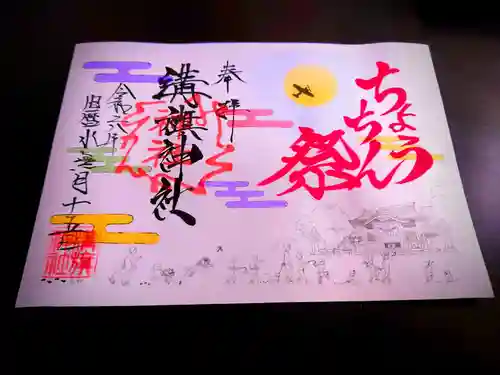 ちょうちん
祭
奉拝
溝旗神社
令和六年
旧暦水無月十五日